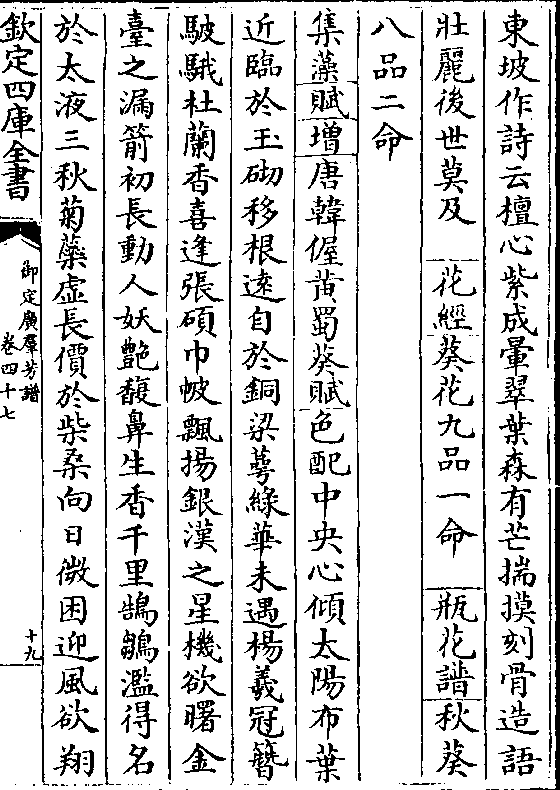 東坡作詩云檀心紫成暈翠葉森有芒揣摸刻骨造語
壯麗後世莫及　花經葵花九品一命　瓶花譜秋葵
八品二命
集藻賦增唐韓偓黃蜀葵賦色配中央心傾太陽布葉
近臨於玉砌移根遠自於銅梁萼綠華未遇楊羲冠簪
駊騀杜蘭香喜逢張碩巾帔飄揚銀漢之星機欲曙金
臺之漏箭初長動人妖艷馥鼻生香千里鵠鶵濫得名
於太液三秋菊蘂虚長價於柴桑向日微困迎風欲翔
欽定四庫全書
御定廣羣芳譜
卷四十七
十九